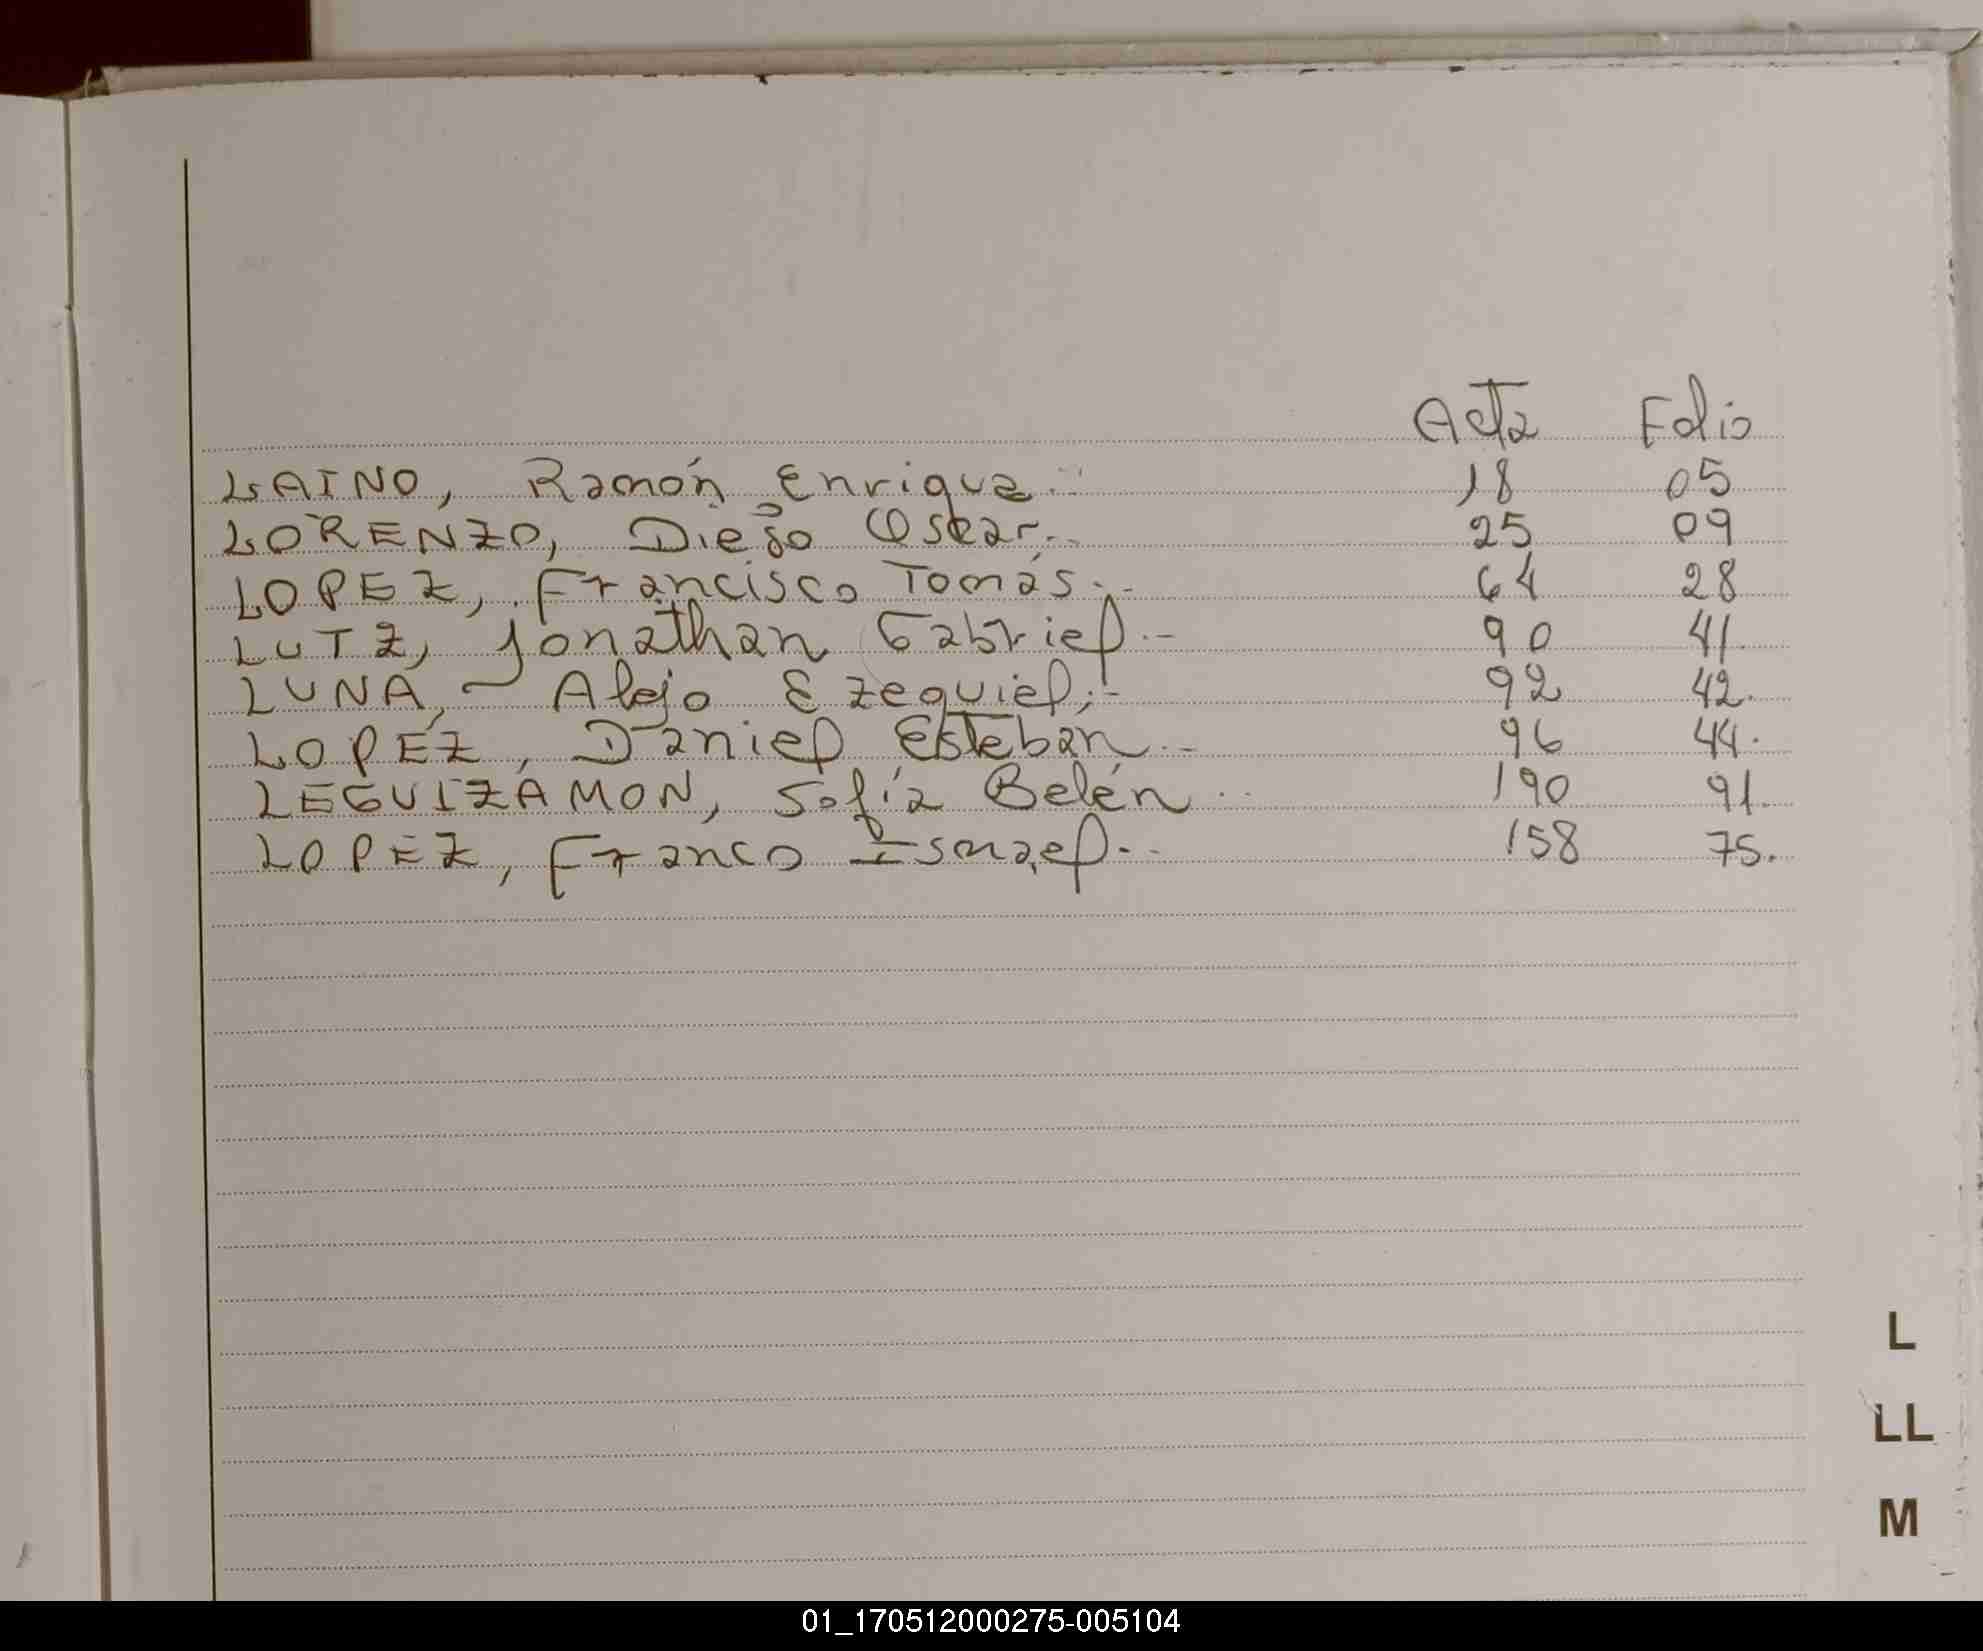 Acta Folio
LAINO, Ramón Enrique.- 18 05
LORENZO, Diego Oscar.- 25 09
LOPEZ, Francisco Tomás.- 64 28
LUTZ, Jonathan Gabriel.- 90 41.
LUNA, Alejo Ezequiel.- 92 42.
LOPEZ, Daniel Esteban.- 96 44.
LEGUIZAMON, Sofía Belén.. 190 91.
LOPEZ, Franco Ismael.- 158 75.
L
LL
M
01_170512000275-005104